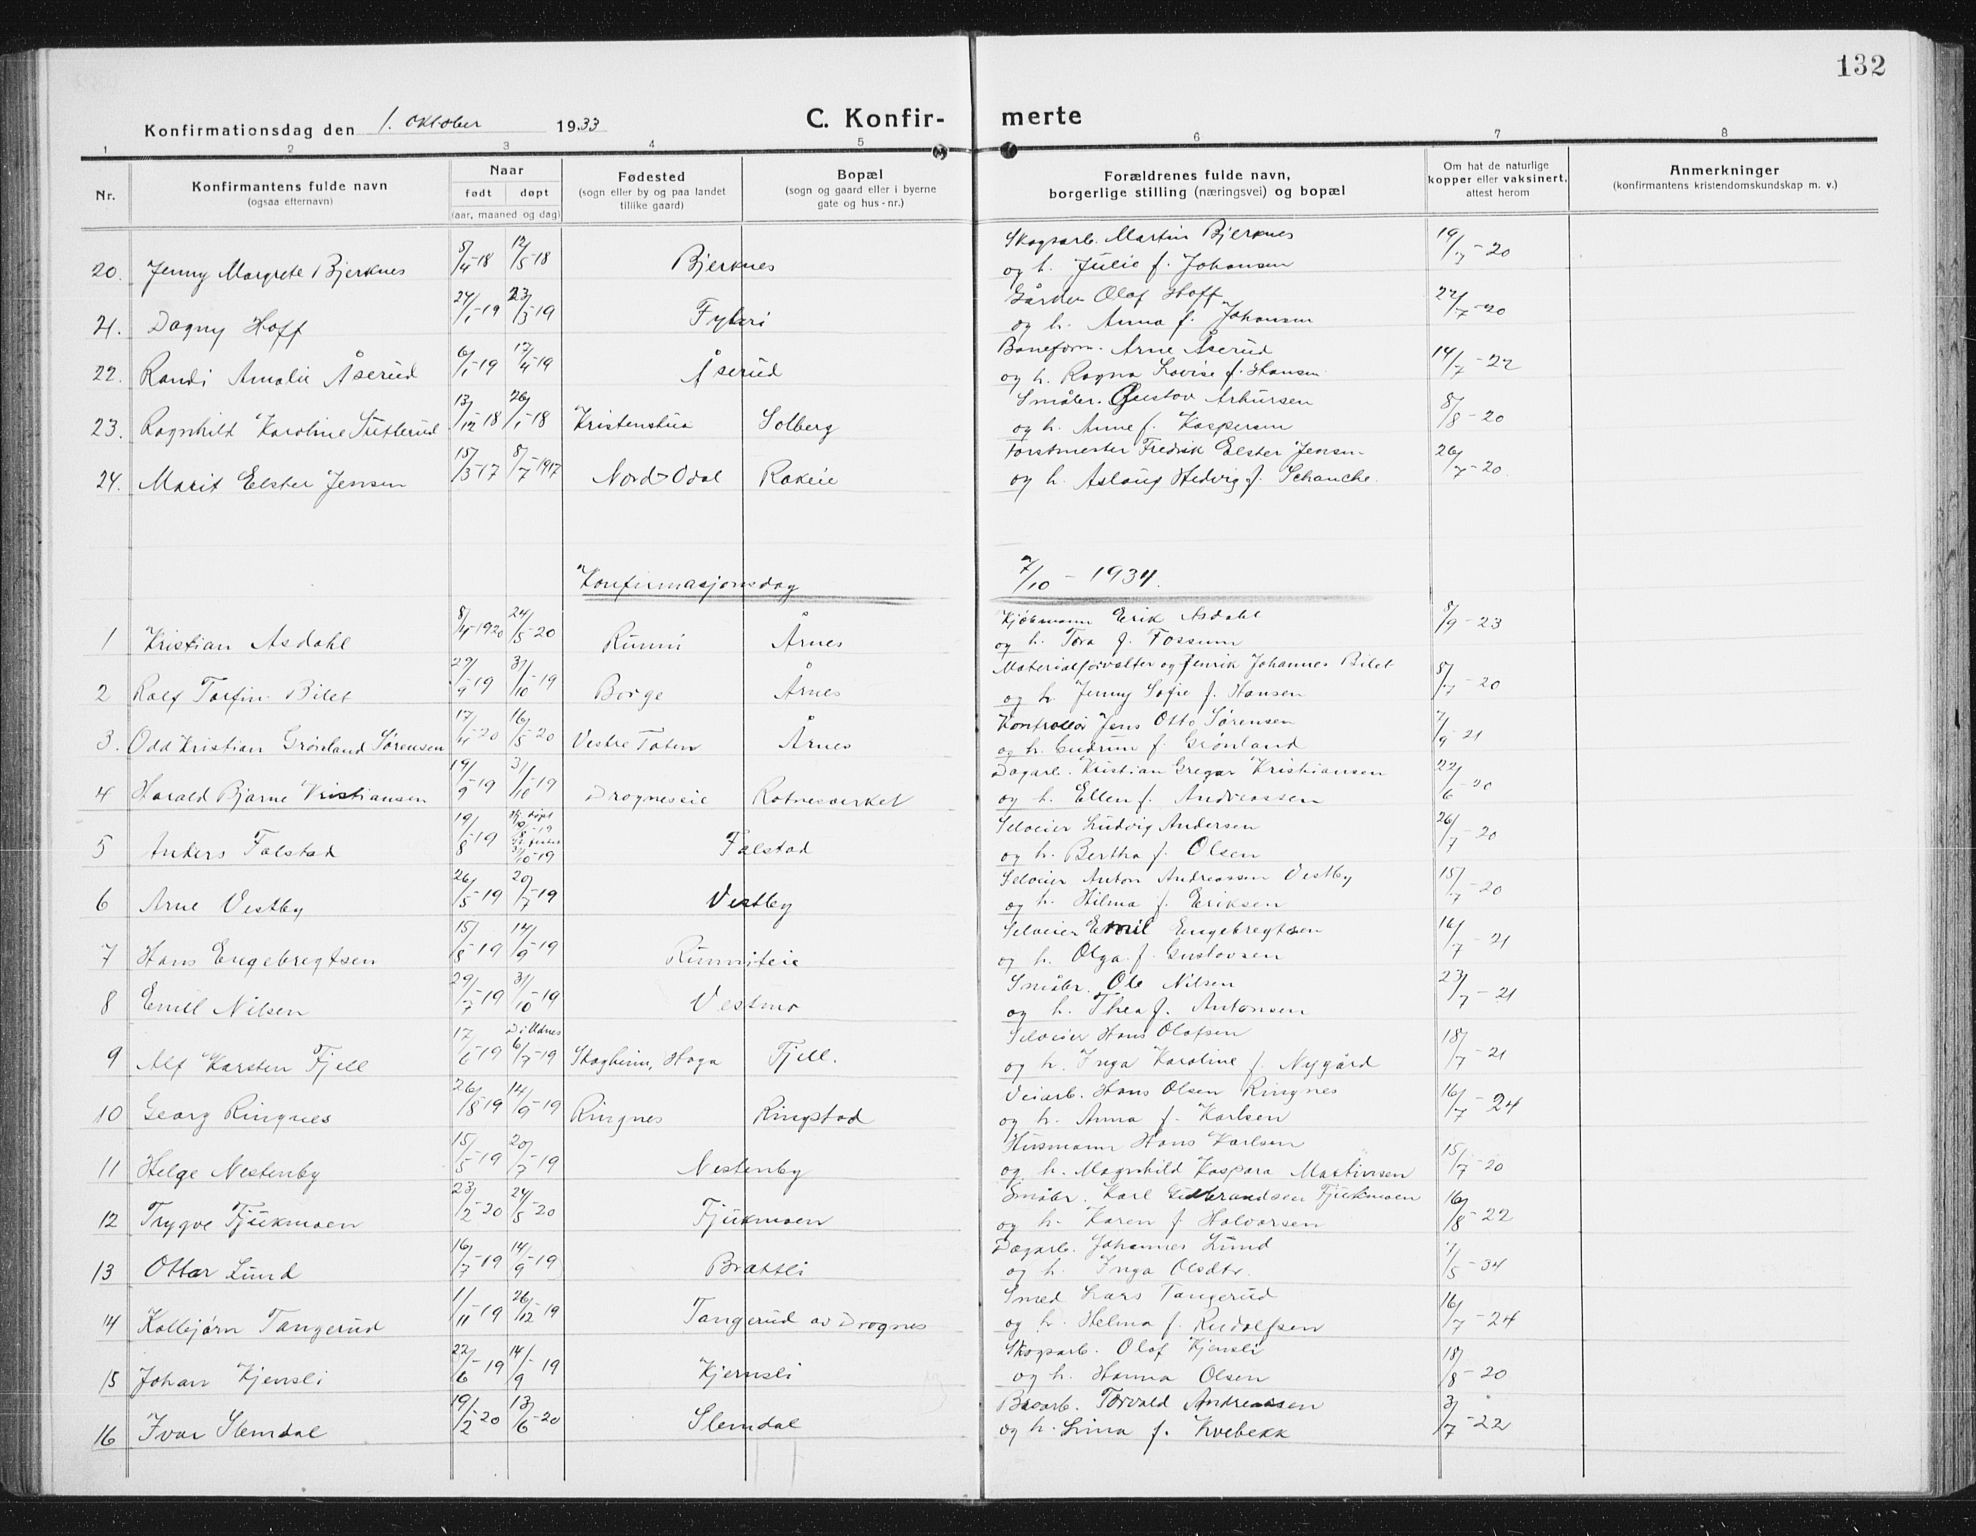 132
Konfirmationsdag den 1. oktober 1933
C. Konfirmerte
1 2 3 4 5 6 7 8
Nr.
Konfirmantens fulde navn
(ogsaa efternavn)
Naar
født døpt
(aar, maaned og dag)
Fødested
(sogn eller by og paa landet
tillike gaard)
Bopæl
(sogn og gaard eller i byerne
gate og hus-nr.)
Forældrenes fulde navn,
borgerlige stilling (næringsvei) og bopæl
Om hat de naturlige
kopper eller vaksinert,
attest herom
Anmerkninger
(konfirmantens kristendomskundskap m. v.)
20. Jenny Margrete Bjerknes 5/4-18 12/5-18 Bjerknes Skogsarb. Martin Bjerknes 19/7-20
og h. Julie f. Johansen
21. Dagny Hoff 24/1-19 23/3-19 Olof Hoff 22/7-20
og h. Anna f. Johansen
22. Randi Amalie Åserud 6/1-19 17/4-19 Åserud Baneform. Arne Åserud 14/7-22
og h. Ragna Lovise f. Hansen
23. Ragnhild Karoline Sutterud 13/12-18 26/1-18 Kristenstua Solberg Småbr. Gustav Arhursen 8/8-20
og h. Anne f. Kaspersen
24. Marit Elster Jensen 15/3-17 8/7-1917 Nord-Odal Rakeie Forstmester Fredrik Elster Jensen 26/7-20.
og h. Aslaug Hedvig f. Schanche.
Konfirmasjonsdag 7/10 - 1934.
1 Kristian Asdahl 8/4-1920 24/5-20 Runni Årnes Kjøbmann Erik Asdahl 8/9-23
og h. Tora f. Fossum
2 Rolf Torfin Bilet 29/9-19 31/10-19 Borge Årnes Materialforvalter og Henrik Johannes Bilet 8/7-20
og h. Jenny Sofie f. Hansen
3. Odd Kristian Grønland Sørensen 17/4-20 16/5-20 Vestre Toten Årnes Kontrollør Jens Otto Sørensen 7/9-21
og h. Gudrun f. Grønland
4 Harald Bjarne Kristiansen 19/9-19 31/10-19 Drogneseie Rotnesverket Dagarb. Kristian Gregar Kristiansen 22/6-20
og h. Ellen f. Andreassen
5 Anders Falstad 19/8-19 31/10-19 Falstad Selveier Ludvig Andersen 26/7-20
og h. Bertha f. Olsen
6 Arne Vestby 26/5-19 20/7-19 Vestby Selveier Anton Andreassen Vestby 15/7-20
og h. Hilma f. Eriksen
7 Hans Engebregtsen 15/8-19 14/9-19 Runniteie Selveier Emil Engebregtsen 16/7-21
og h. Olga f. Gustavsen
8 Emil Nilsen 29/7-19 31/10-19 Vestmo Småbr. Ole Nilsen 23/7-21
og h. Thea f. Antonsen
9 Alf Karsten Fjell 17/6-19 Di Udnes 6/7-19 Skogheim, Haga Fjell. Selveier Hans Olafsen 18/7-21
og h. Inga Karoline f. Nygård
10 Georg Ringnes 26/8-19 14/9-19 Ringnes Ringstad Veiarb. Hans Olsen Ringnes 16/7-24
og h. Anna f. Karlsen
11 Helge Nestenby 15/5-19 20/7-19 Nestenby Husmann Hans Karlsen 15/7-20
og h. Magnhild Kaspara Martinsen
12 Trygve Fjukmoen 23/2-20 24/5-20 Fjukmoen Småbr. Karl Gulbrandsen Fjukmoen 16/8-22
og h. Karen f. Halvorsen
13 Ottar Lund 16/7-19 14/9-19 Brattli Dagarb. Johannes Lund 7/5-34
og h. Inga Olsdtr.
14 Kolbjørn Tangerud 1/11-19 26/12-19 Tangerud av Drognes Smed Lars Tangerud 16/7-24
og h. Helma f. Rudolfsen
15 Johan Kjensli 22/6-19 14/9-19 Kjernsli Skogsarb. Olaf Kjensli 18/8-20
og h. Hanna Olsen
16 Ivar Slemdal 19/2-20 13/6-20 Slemdal Torvald Andreassen 3/7-22
og h. Lina f. Kvebekk